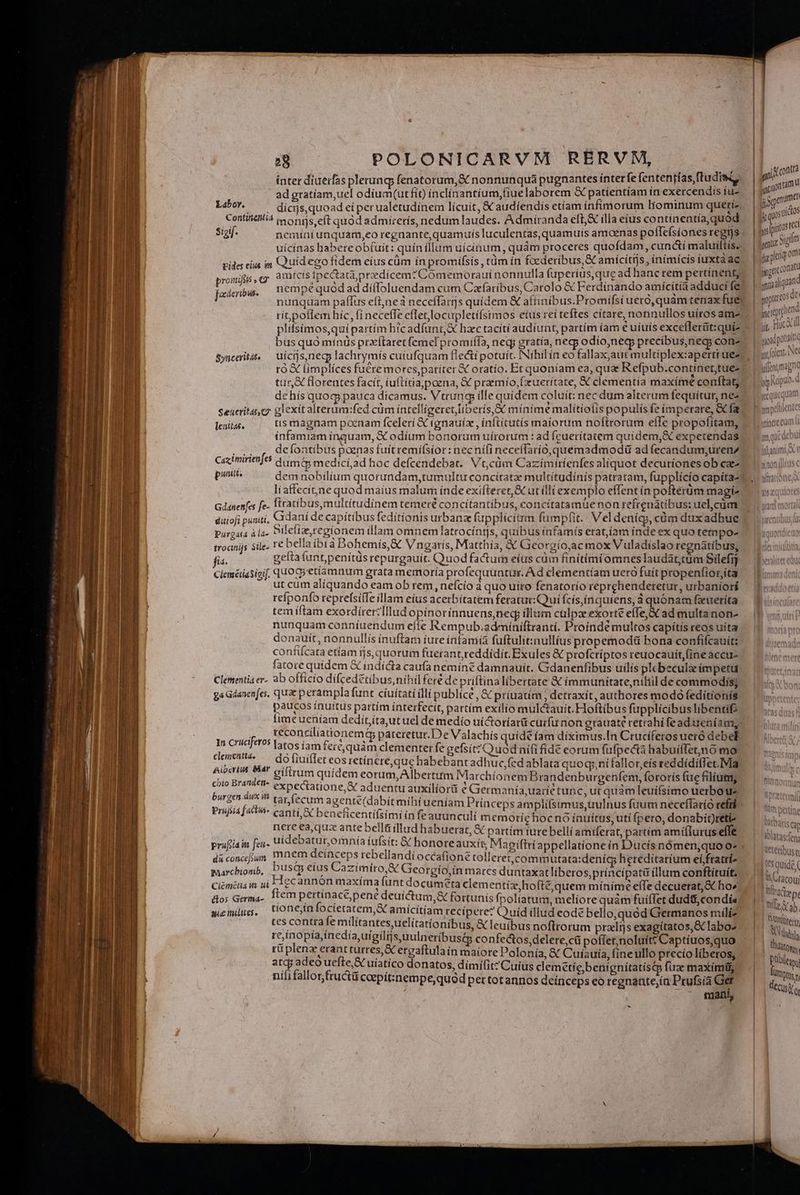 28 POLONICARVM RERVM,
inter diuersas plerunq; senatorum, & nonnunquã pugnantes inter se sententias, studiaq;
ad gratiam, uel odium (ut fit) inclinantium, siue laborem & patientiam in exercendis iu-
Labor. dicijs, quoad ei per ualetudinem licuit, & audiendis etiam infimorum hominum queri-
Continentia monijs, est quòd admireris, nedum laudes. Admiranda est, & illa eius continentia, quòd
Sigis. nemini unquam, eo regnante, quamuis luculentas, quamuis amœnas possessiones regijs
uicinas habere obfuit: quin illum uicinum, quàm proceres quosdam, cuncti maluissent.
Fides eius in Quid ego fidem eius cùm in promissis, tùm in fœderibus, & amicitijs, inimicis iuxtà ac
promissis, & amicis spectatã, prædicem? Commemoraui nonnulla superius, quæ ad hanc rem pertinent,
fœderibus. nempe quòd ad dissoluendam cum Cæsaribus, Carolo & Ferdinando amicitiã adduci se
nunquam passus est, ne à necessarijs quidem & affinibus. Promissi uerò, quàm tenax fue-
rit, possem hîc, si necesse esset, locupletissimos eius rei testes citare, nonnullos uiros am-
plissimos, qui partim hîc adsunt, & hæc taciti audiunt, partim iam è uiuis excesserũt: qui-
bus quo minùs præstaret semel promissa, neq; gratia, neq; odio, neq; precibus, neq; con-
Synceritas. uicijs, neq; lachrymis cuiusquam flecti potuit. Nihil in eo fallax, aut multiplex: aperti ue-
rò & simplices fuêre mores, pariter & oratio. Et quoniam ea, quæ Rempub. continet, tue-
tur, & florentes facit, iustitia, pœna, & præmio, seueritate, & clementia maximè constat,
de his quoq; pauca dicamus. Vtrunq; ille quidem coluit: nec dum alterum sequitur, ne-
Seueritas, & glexit alterum: sed cùm intelligeret, liberis, & minimè malitiosis populis se imperare, & fa-
lenitas. tis magnam pœnam sceleri & ignauiæ, institutis maiorum nostrorum esse propositam,
infamiam inquam, & odium bonorum uirorum: ad seueritatem quidem, & expetendas
de sontibus pœnas fuit remissior: nec nisi necessariò, quemadmodũ ad secandum, uren-
Cazimirienses dumq; medici, ad hoc descendebat. Vt, cùm Cazimirienses aliquot decuriones ob cæ-
puniti. dem nobilium quorundam, tumultu concitatæ multitudinis patratam, supplicio capita-
li affecit, ne quod maius malum inde existeret, & ut illi exemplo essent in posterùm magi-
Gdanenses se- stratibus, multitudinem temerè concitantibus, concitatamúe non refrenãtibus: uel, cùm
ditiosi puniti. Gdani de capitibus seditionis urbanæ supplicium sumpsit. Vel deniq;, cùm dux adhuc
Purgata à la- Silesiæ, regionem illam omnem latrocinijs, quibus infamis erat, iam inde ex quo tempo-
trocinijs Sile- re bella ibi à Bohemis, & Vngaris, Matthia, & Georgio, ac mox Vuladislao regnãtibus,
sia. gesta sunt, penitùs repurgauit. Quod factum eius cùm finitimi omnes laudãt, tùm Silesij
Clemẽtia Sigis. quoq; etiamnum grata memoria prosequuntur. Ad clementiam uerò fuit propensior, ita
ut cum aliquando eam ob rem, nescio à quo uiro senatorio reprehenderetur, urbaniori
responso repressisse illam eius acerbitatem feratur: Qui scis, inquiens, à quónam seuerita
tem istam exordirer? Illud opinor innuens, neq; illum culpæ exortẽ esse, & ad multa non-
nunquam conniuendum esse Rempub. administranti. Proinde multos capitis reos uita
donauit, nonnullis inustam iure infamiã sustulit: nullius propemodũ bona confiscauit:
confiscata etiam ijs, quorum fuerant, reddidit. Exules & proscriptos reuocauit, sine accu-
satore quidem & indicta causa neminẽ damnauit. Gdanensibus uilis plebeculæ impetu
Clementia er- ab officio discedẽtibus, nihil ferè de pristina libertate & immunitate, nihil de commodis,
ga Gdanenses. quæ perampla sunt ciuitati illi publicè, & priuatim, detraxit, authores modò seditionis
paucos inuitus partim interfecit, partim exilio mulctauit. Hostibus supplicibus libentis-
simè ueniam dedit, ita, ut uel de medio uictoriarũ cursu non grauatè retrahi se ad ueniam,
reconciliationemq; pateretur. De Valachis quidẽ iam diximus. In Cruciferos uerò debel-
In Cruciferos latos iam ferè, quàm clementer se gessit? Quòd nisi fidẽ eorum suspectã habuisset, nõ mo-
clementia. dò siuisset eos retinere, quę habebant adhuc, sed ablata quoq;, ni fallor, eis reddidisset. Ma
Albertus Mar gistrum quidem eorum, Albertum Marchionem Brandenburgensem, sororis suę filium,
chio Branden- expectatione, & aduentu auxiliorũ è Germania, uariè tunc, ut quàm leuissimo uerbo u-
burgen. dux in tar, secum agentẽ (dabit mihi ueniam Princeps amplissimus, uulnus suum necessariò refri
Prussia factus. canti, & beneficentissimi in se auunculi memorię hoc nõ inuitus, uti spero, donabit) reti-
nere ea, quæ ante bellũ illud habuerat, & partim iure belli amiserat, partim amissurus esse
Prussia in feu- uidebatur, omnia iussit: & honore auxit, Magistri appellatione in Ducis nómen, quo o-
dũ concessum mnem deinceps rebellandi occasionẽ tolleret, commutata: deniq; hereditarium ei, fratri-
Marchionib. busq; eius Cazimiro, & Georgio, in mares duntaxat liberos, principatũ illum constituit.
Clẽmẽtia in ui Hęccannón maxima sunt documẽta clementiæ, hostẽ, quem minimè esse decuerat, & ho-
ctos Germa- stem pertinacẽ, penè deuictum, & fortunis spoliatum, meliore quàm fuisset dudũ, condi-
niæ milites. tione, in societatem, & amicitiam recipere? Quid illud eodẽ bello, quòd Germanos mili-
tes contra se militantes, uelitationibus, & leuibus nostrorum prælijs exagitatos, & labo-
re, inopia, inedia, uigilijs, uulneribusq; confectos, delere, cũ posset, noluit? Captiuos, quo
rũ plenæ erant turres, & ergastula in maiore Polonia, & Cuiauia, sine ullo precio liberos,
atq; adeò ueste, & uiatico donatos, dimisit? Cuius clemẽtię, benignitatisq; suæ maximũ,
nisi fallor, fructũ cœpit: nempe, quòd per tot annos deinceps eo regnante, in Prussiã Ger
mani,